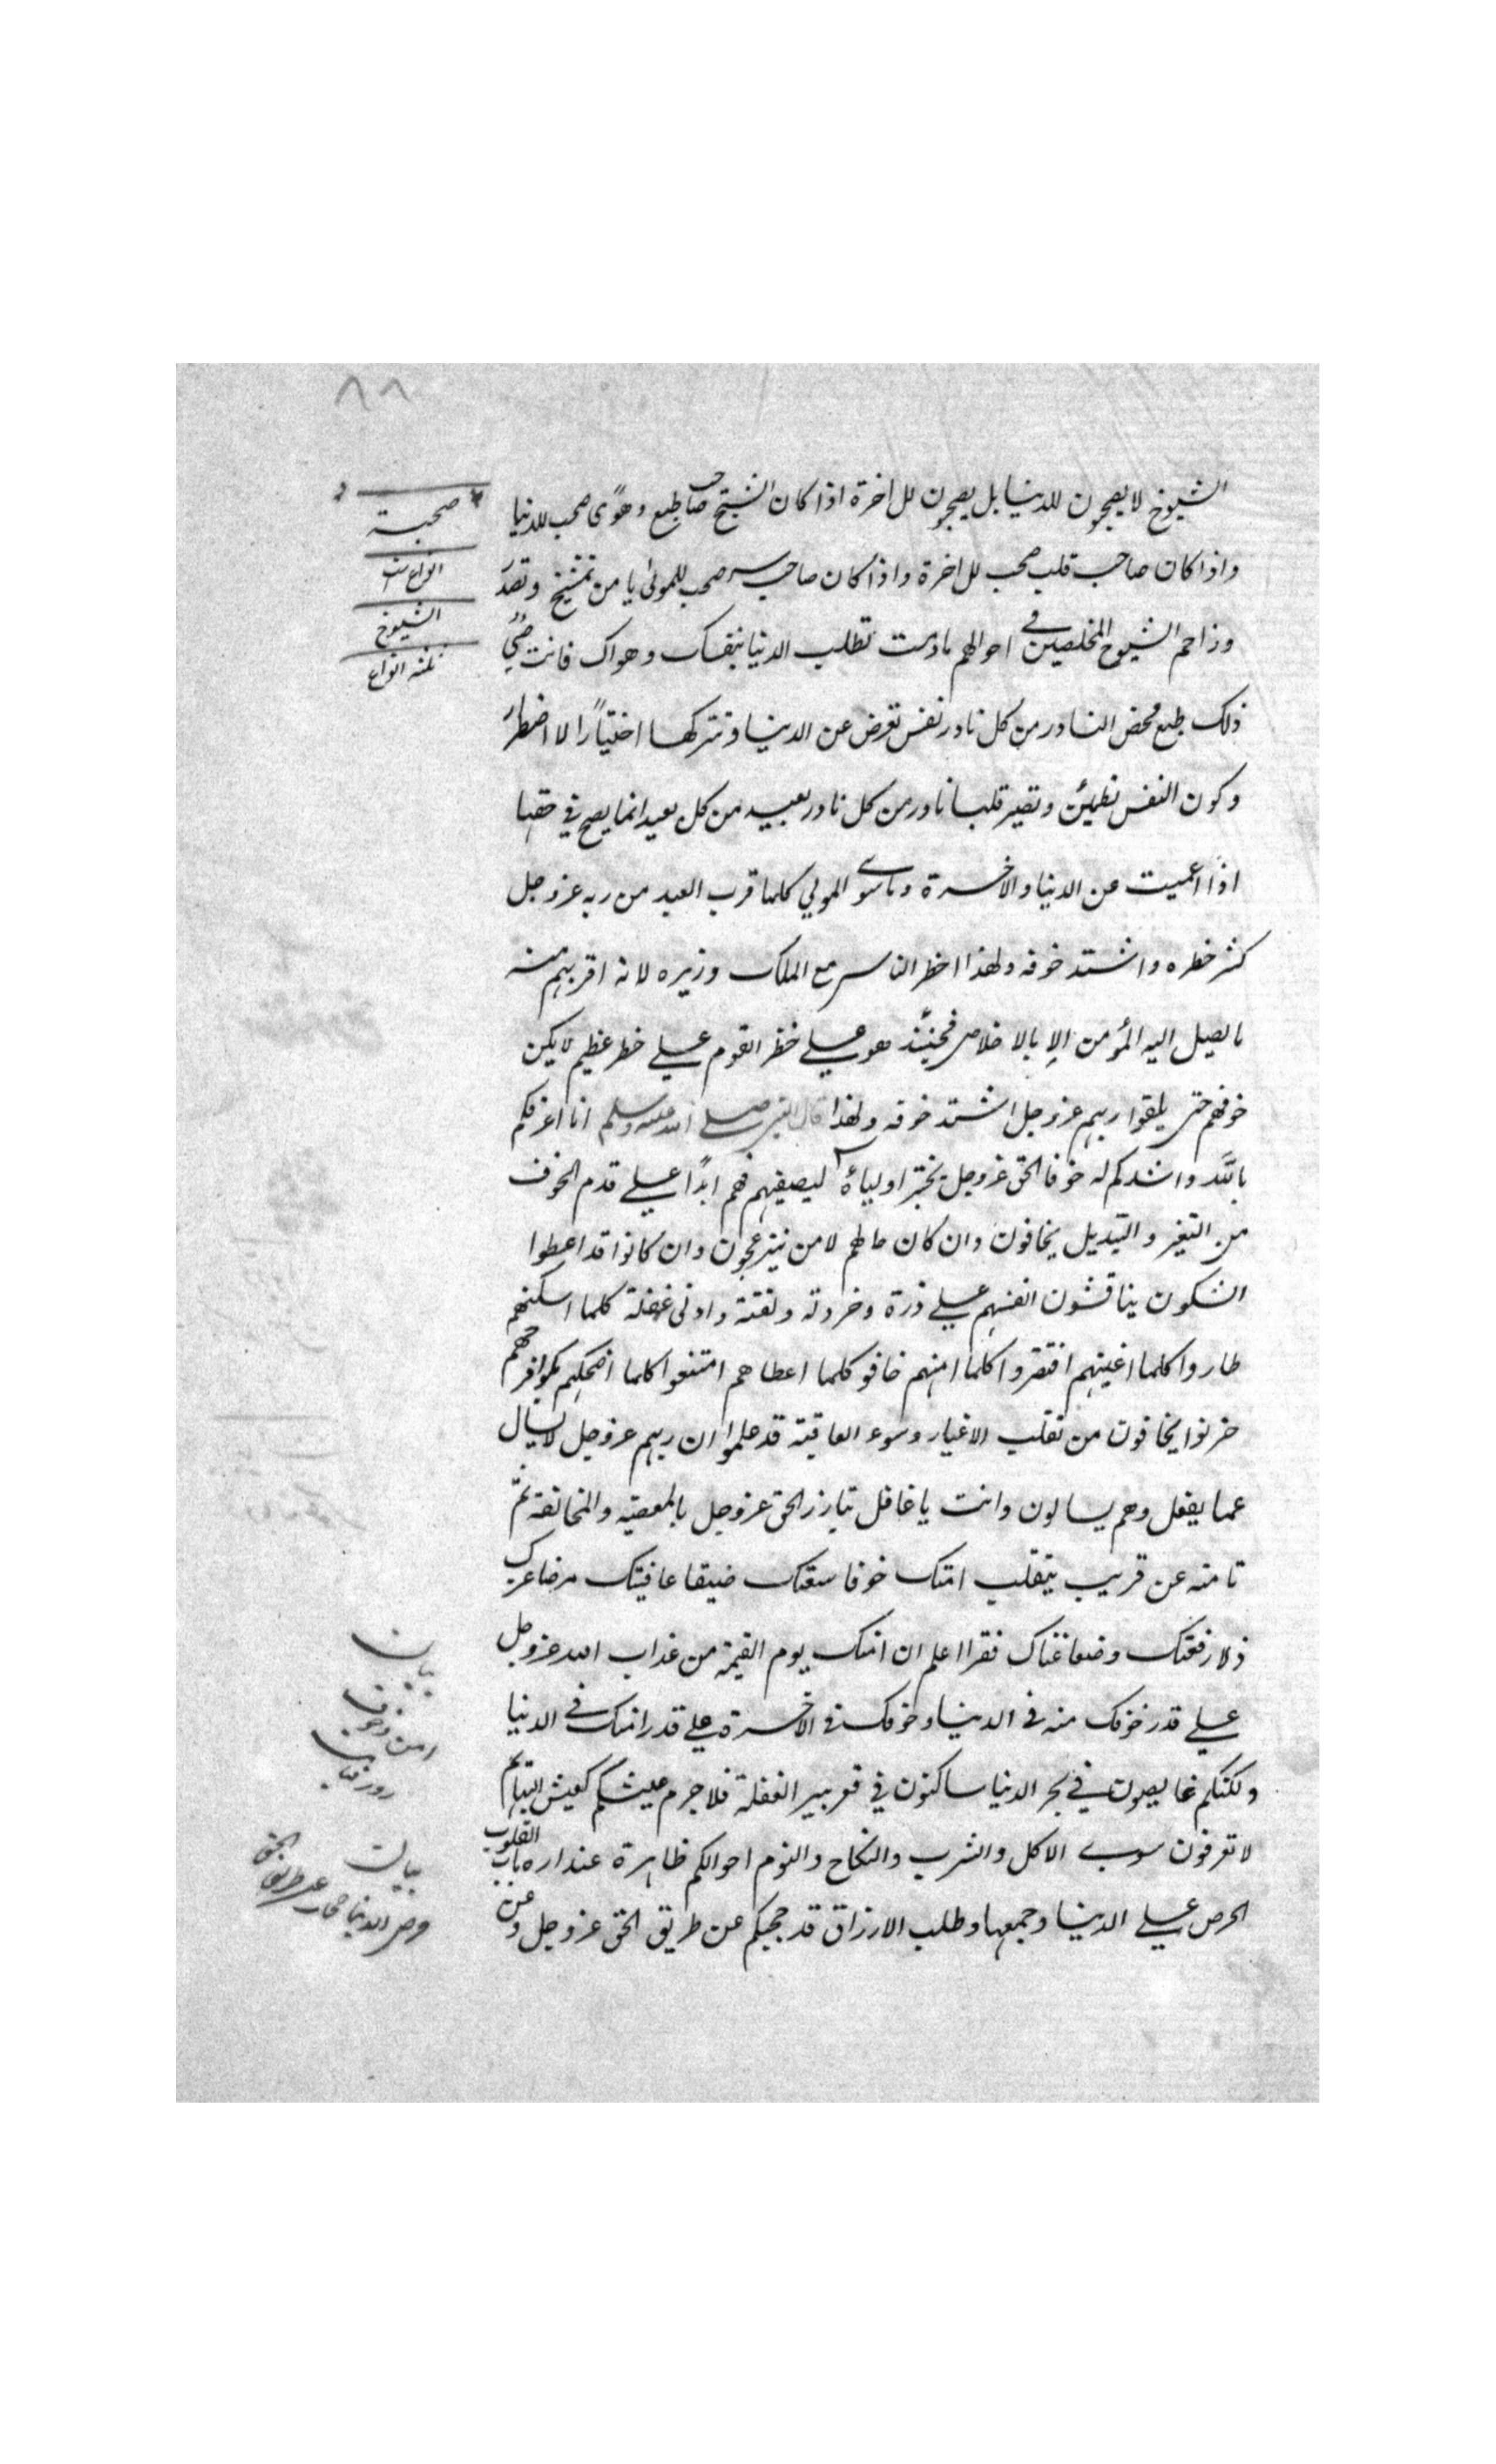 ٨٨
الشيوخ لا يصحبون للدنيا بل يصحبون للاخرة اذا كان الشيخ صاحب طبع وهوًى صحب للدنيا
واذا كان صاحب قلب صحب للاخرة واذا كان صاحب سر صحب للمولى يا من تمشيخ وتصدَ
وزاحم الشيوخ المخلصين في احوالهم مادمت تطلب الدنيا بنفسك وهواك فانت صبي
ذلك طبع محض النادر من كل نادر نفس تعرض عن الدنيا وتتركها اختيارًا لا اضطرارَ
وكون النفس تطمئن وتصير قلبا نادر من كل نادر بعيد من كل بعيد انما يصح في حقها
اذا اعميت عن الدنيا والاخرة وما سوى المولي كلما قرب العبد من ربه عزوجل
كثر خطره واشتد خوفه ولهذا اخطر الناس مع الملك وزيره لانه اقربهم منه
ما يصل اليه المؤمن الا بالاخلاص فحينئذ هو علے خطر القوم علے خطر عظيم لا يكن
خوفهم حتى يلقوا ربهم عزوجل اشتد خوفه ولهذا قال النبي صلے الله عليه وسلم انا اعرفكم
بالله واشدكم له خوفا الحق عزوجل يختبر اولياءه ليصفيهم فهم ابدًا علے قدم الخوف
من التغير والتبديل يخافون وان كان حالهم لا من ينزعجون وان كانوا قد اعطوا
السكون يناقشون انفسهم علے ذرة وخردلة ولفتة وادنى غفلة كلما اسكنهم
طاروا كلما اغنيهم افتقروا كلما امنهم خافو كلما اعطاهم امتنعوا كلما اضحكهم بكوا فرحهم
حزنوا يخافون من تقلب الاغيار وسوء العاقبة قد علموا ان ربهم عزوجل لا يسال
عما يفعل وهم يسالون وانت يا غافل تبارز الحق عزوجل بالمعصية والمخالفة ثم
تامنه عن قريب ينقلب امنك خوفا سعتك ضيقا عافيتك مرضا عزك
ذلا رفعتك وضعا غناك فقرا اعلم ان امنك يوم القيمة من عذاب الله عزوجل
علے قدر خوفك منه في الدنيا وخوفك في الاخرة علے قدر امنك في الدنيا
ولكنكم غايصون في بحر الدنيا ساكنون في قعر بير الغفلة فلا جرم عيشكم كعيش البهايم
لا تعرفون سوى الاكل والشرب والنكاح والنوم احوالكم ظاهرة عند ارباب القلوب
الحرص علے الدنيا وجمعها وطلب الارزاق قد حجبكم عن طريق الحق عزوجل وعن
صحبة
انواع ست
الشيوخ
ثلثه انواع
بيان
امن وخوف
روز قيامت
بيان
حرص الدنيا حجاب عن طريق الحق